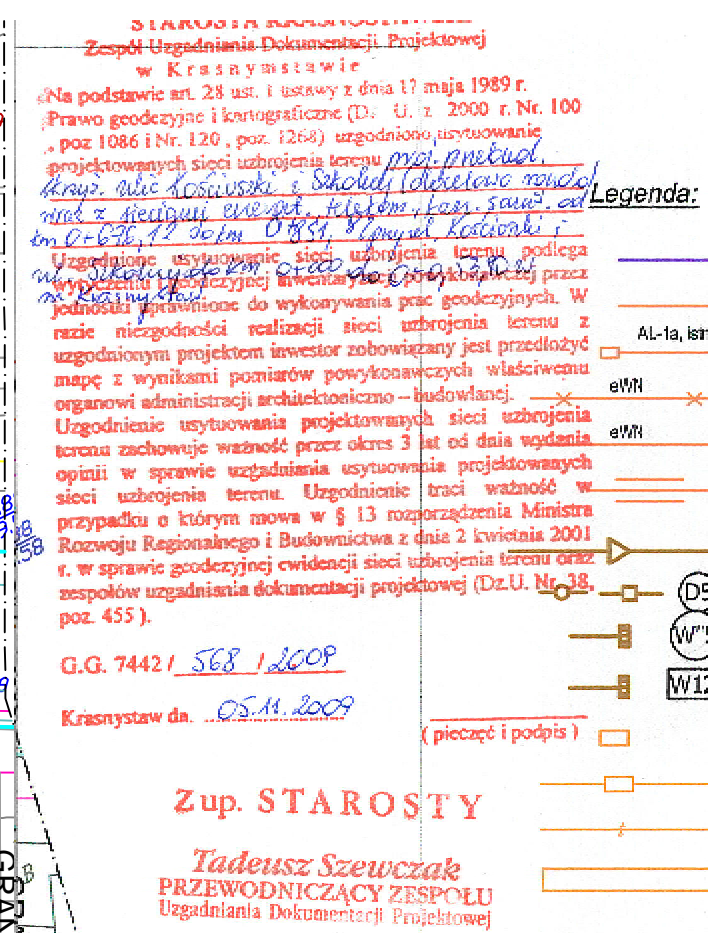 STAROSTA KRASNOSTAWSKI
Zespół Uzgadniania Dokumentacji Projektowej
w Krasnymstawie
Na podstawie art. 28 ust. 1 ustawy z dnia 17 maja 1989 r.
Prawo geodezyjne i kartograficzne (Dz. U. z 2000 r. Nr. 100
, poz 1086 i Nr. 120, poz. 1268) uzgodniono usytuowanie
projektowanych sieci uzbrojenia terenu
ulic Kościuszki i Szkolnej
wraz z
km 0+676,12 do km Kościuszki i
Uzgodnione usytuowanie sieci uzbrojenia terenu podlega
ul. Szkolnej do km 0+000 do
wytyczeniu i geodezyjnej inwentaryzacji powykonawczej przez
m. Krasnystaw
jednostki uprawnione do wykonywania prac geodezyjnych. W
razie niezgodności realizacji sieci uzbrojenia terenu z
uzgodnionym projektem inwestor zobowiązany jest przedłożyć
mapę z wynikami pomiarów powykonawczych właściwemu
organowi administracji architektoniczno – budowlanej.
Uzgodnienie usytuowania projektowanych sieci uzbrojenia
terenu zachowuje ważność przez okres 3 lat od dnia wydania
opinii w sprawie uzgadniania usytuowania projektowanych
sieci uzbrojenia terenu. Uzgodnienie traci ważność w
przypadku o którym mowa w § 13 rozporządzenia Ministra
Rozwoju Regionalnego i Budownictwa z dnia 2 kwietnia 2001
r. w sprawie geodezyjnej ewidencji sieci uzbrojenia terenu oraz
zespołów uzgadniania dokumentacji projektowej (Dz.U. Nr. 38,
poz. 455 ).
G.G. 7442 / 568 / 2009
Krasnystaw da. 05.11.2009
( pieczęć i podpis )
Z up. STAROSTY
Tadeusz Szewczak
PRZEWODNICZĄCY ZESPOŁU
Uzgadniania Dokumentacji Projektowej
Legenda:
AL-1a, istn
eWN
eWN
D5
W"
W12
58
GRAN